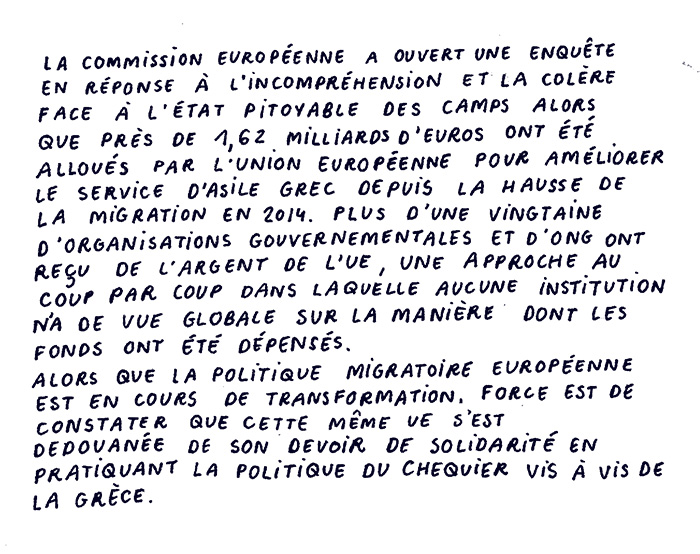 LA COMMISSION EUROPÉENNE A OUVERT UNE ENQUÊTE
EN RÉPONSE À L'INCOMPRÉHENSION ET LA COLÈRE
FACE À L'ÉTAT PITOYABLE DES CAMPS ALORS
QUE PRÈS DE 1,62 MILLIARDS D'EUROS ONT ÉTÉ
ALLOUÉS PAR L'UNION EUROPÉENNE POUR AMÉLIORER
LE SERVICE D'ASILE GREC DEPUIS LA HAUSSE DE
LA MIGRATION EN 2014. PLUS D'UNE VINGTAINE
D'ORGANISATIONS GOUVERNEMENTALES ET D'ONG ONT
REÇU DE L'ARGENT DE L'UE, UNE APPROCHE AU
COUP PAR COUP DANS LAQUELLE AUCUNE INSTITUTION
N'A DE VUE GLOBALE SUR LA MANIÈRE DONT LES
FONDS ONT ÉTÉ DÉPENSÉS.
ALORS QUE LA POLITIQUE MIGRATOIRE EUROPÉENNE
EST EN COURS DE TRANSFORMATION. FORCE EST DE
CONSTATER QUE CETTE MÊME UE S'EST
DEDOUANÉE DE SON DEVOIR DE SOLIDARITÉ EN
PRATIQUANT LA POLITIQUE DU CHEQUIER VIS À VIS DE
LA GRÈCE.